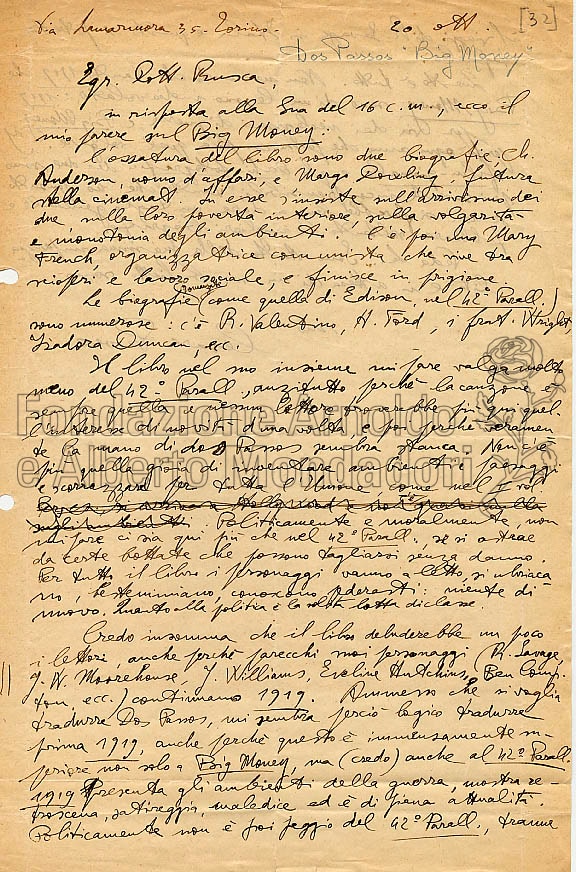 Via Lamarmora 35 - Torino - 20 ott [32]
Dos Passos "Big Money"
Egr. Dott. Rusca,
in risposta alla Sua del 16 c.m., ecco il
mio parere sul Big Money:
L'ossatura del libro sono due biografie: Ch.
Anderson, uomo d'affari, e Margo Dowling futura
stella cinemat. In esse s'insiste sull'arrivismo dei
due sulla loro povertà interiore, sulla volgarità
e monotonia degli ambienti. C'è poi una Mary
French, organizzatrice comunista, che vive tra
scioperi e lavoro sociale, e finisce in prigione.
Le biografie romanzate (come quella di Edison, nel 42° Parall.)
sono numerose: c'è R. Valentino, H. Ford, i frat. Wright,
Isadora Duncan, ecc.
Il libro nel suo insieme mi pare valga molto
meno del 42° Parall., anzitutto perché la canzone è
sempre quella e nessun lettore troverebbe più quel-
l'interesse di novità d'una volta e poi perché veramen-
te la mano di dos Passos sembra stanca. Non c'è
più quella gioia di inventare ambienti e paesaggi
e scorrazzare per tutta l'Unione come nel 1° vol.
Politicamente e moralmente, non
mi pare ci sia qui più che nel 42° Parall. se si astrae
da certe battute che possono tagliarsi senza danno.
Per tutto il libro i personaggi vanno a letto, si ubriaca-
no, bestemmiano, conoscono pederasti: niente di
nuovo. Quanto alla politica è la solita lotta di classe.
Credo insomma che il libro deluderebbe un poco
i lettori, anche perché parecchi suoi personaggi (R. Savage,
J. W. Moorehouse, J. Williams, Eveline Hutchins, Ben Comp-
ton, ecc.) continuano 1919. Ammesso che si voglia
tradurre Dos Passos, mi sembra perciò logico tradurre
prima 1919, anche perché questo è immensamente su-
periore non solo a Big Money, ma (credo) anche al 42° Parall.
1919 presenta gli ambienti della guerra, mostra re-
troscena, satireggia, maledice ed è di piena attualità.
Politicamente non è poi peggio del 42° Parall., tranne
Fondazione Arnoldo
e Alberto Mondadori